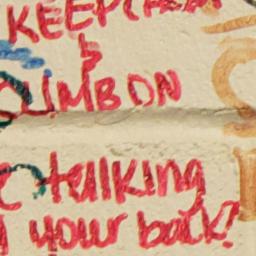 KEEP
&
CLIMB ON
talking
your back?